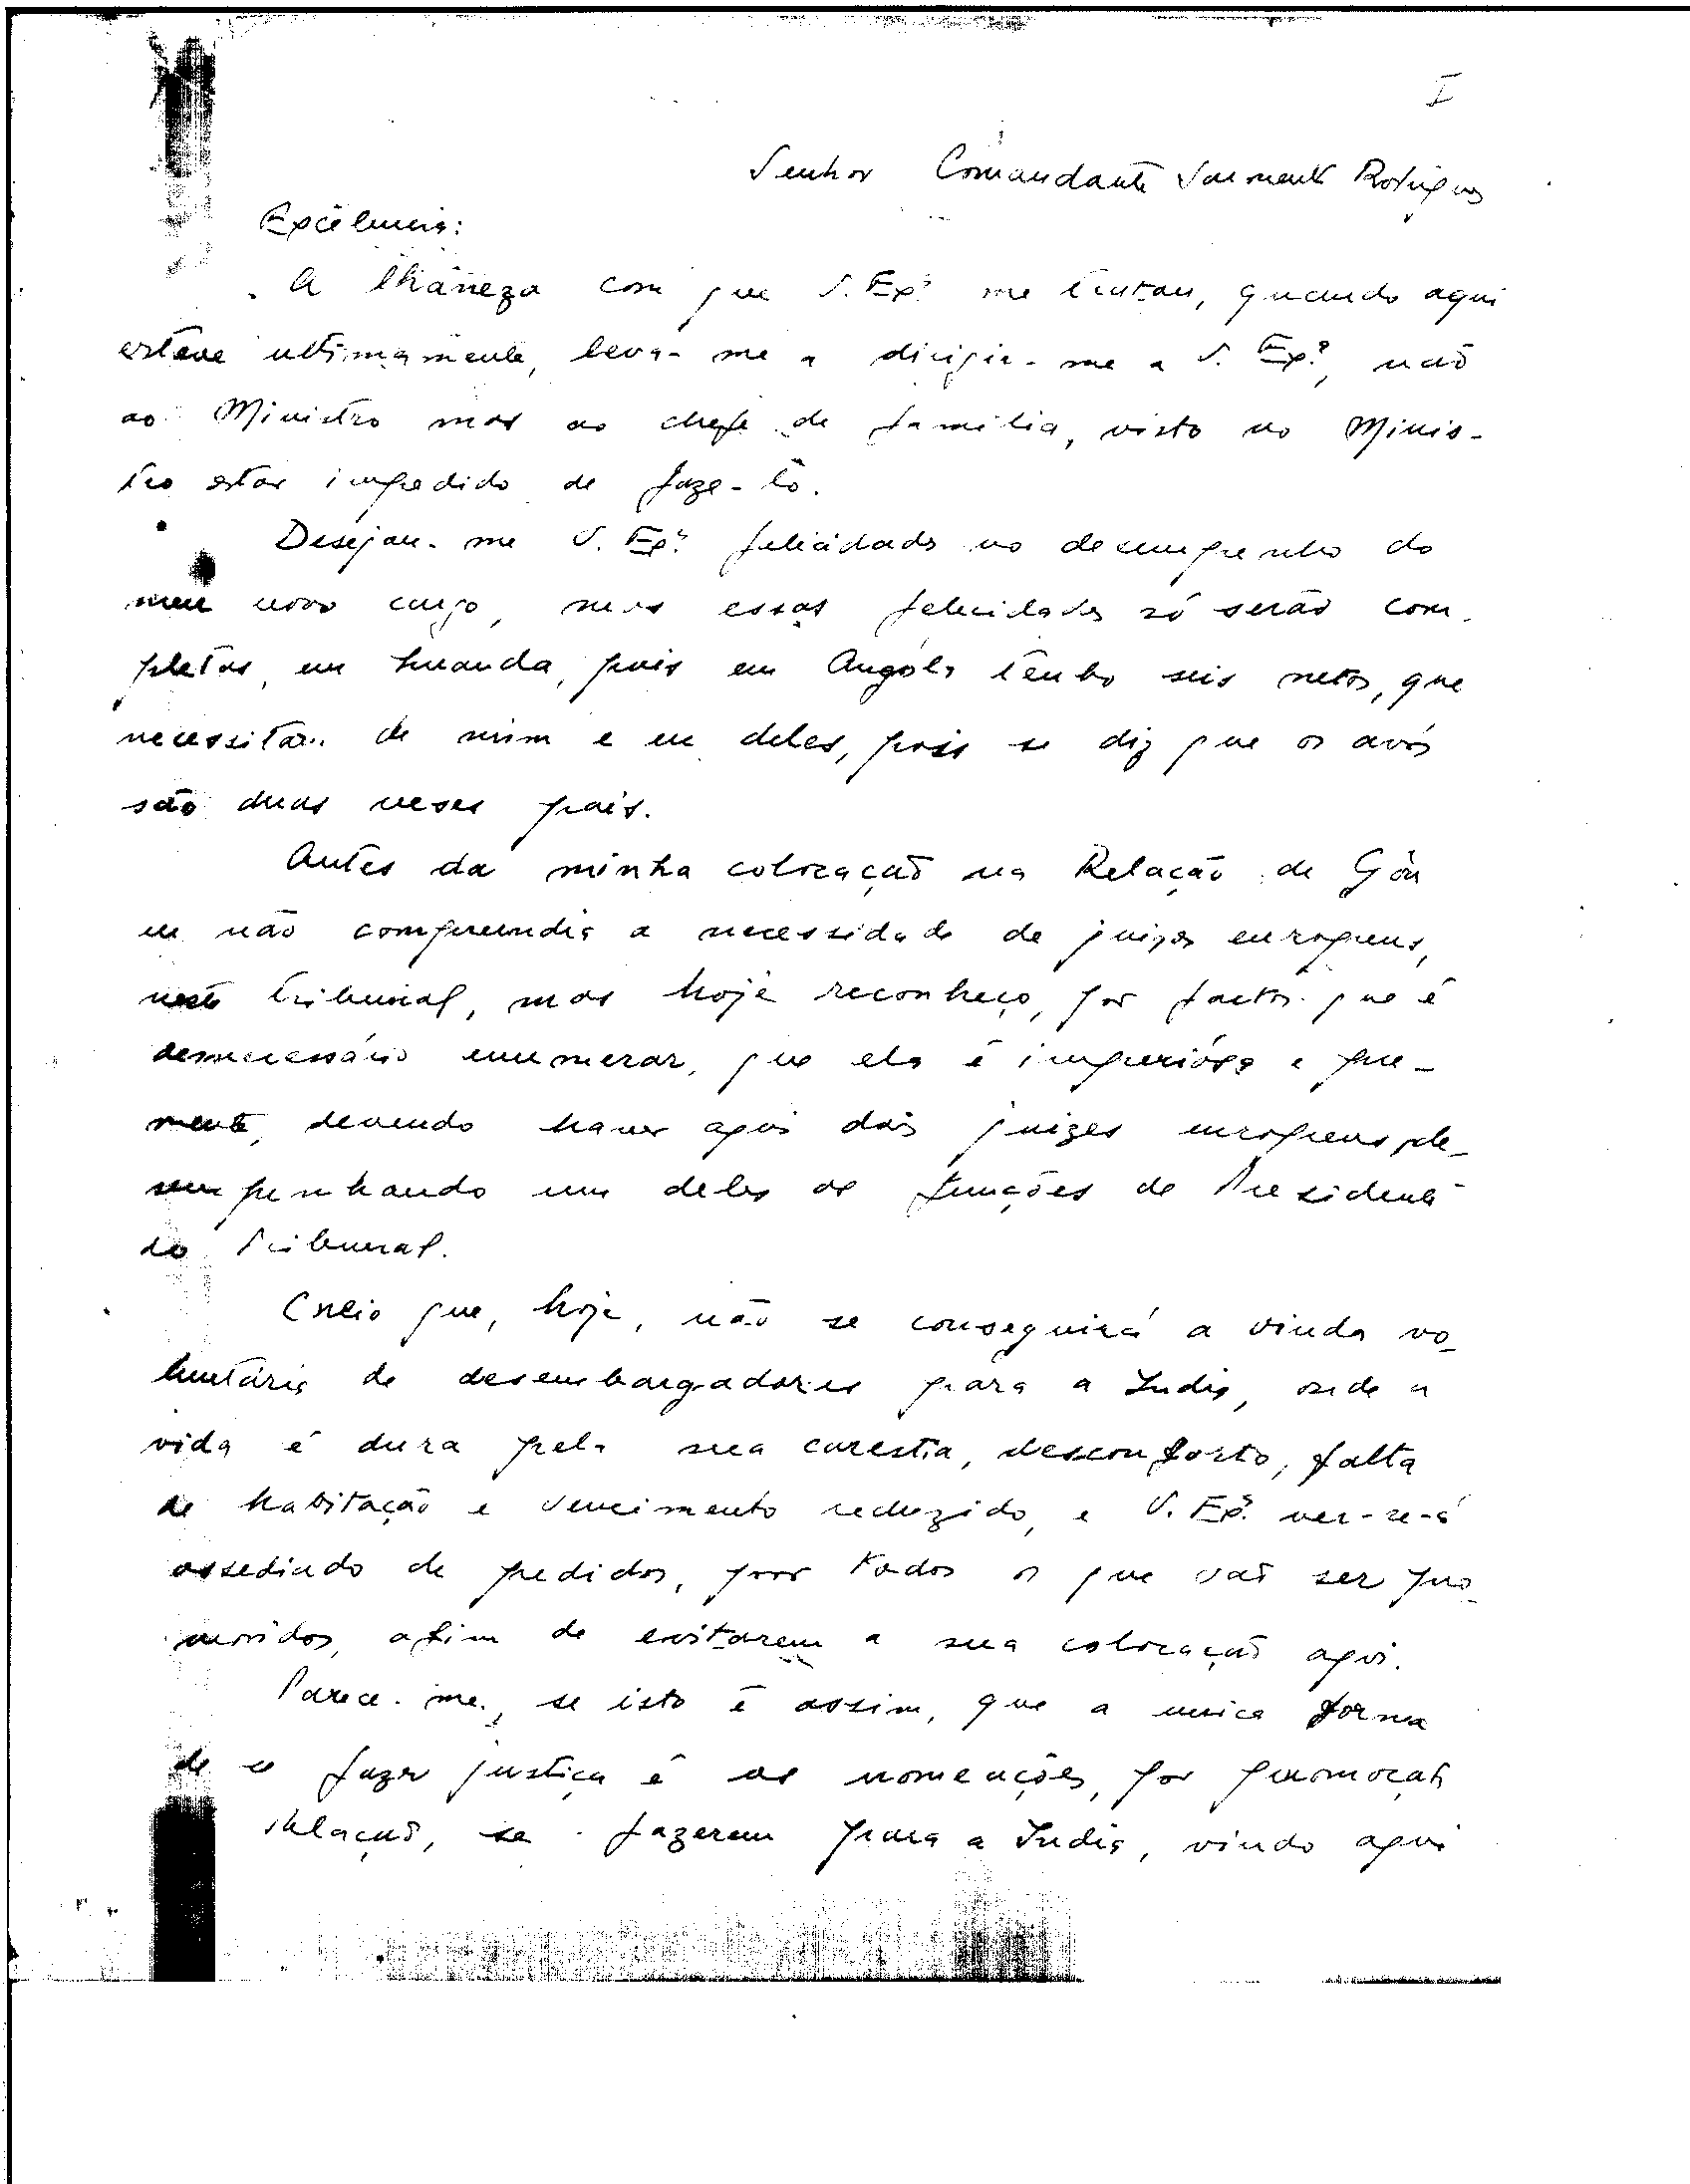 I
Senhor Comandante Sarmento Rodrigues
Excelencia:
A lhaneza com que V. Exª me tratou, quando aqui
esteve ultimamente, leva-me a dirigir-me a V. Exª, não
ao Ministro mas ao chefe de familia, visto ao Minis-
tro estar impedido de faze-lo.
Desejou-me V. Exª felicidades no desempenho do
meu novo cargo, mas essas felicidades só serão com-
pletas, em Luanda, pois em Angola tenho seis netos, que
necessitam de mim e eu deles, pois se diz que os avós
são duas veses pais.
Antes da minha colocação na Relação de Gôa
eu não compreendia a necessidade de juizes europeus,
neste tribunal, mas hoje reconheço, por factos que é
desnecessário enumerar, que ela é imperiósa e pre-
mente, devendo haver aqui dois juizes europeus, de-
sempenhando um deles as funções de Presidente
do Tribunal.
Creio que, hoje, não se conseguirá a vinda vo-
luntária de desembargadores para a India, onde a
vida é dura pela sua carestia, desconforto, falta
de habitação e vencimento reduzido, e V. Exª ver-se-á
assediado de pedidos, por todos os que vão ser pro-
movidos, afim de evitarem a sua colocação aqui.
Parece-me, se isto é assim, que a unica forma
de se fazer justiça é as nomeações, por promoção
Relação, se fazerem para a India, vindo aqui